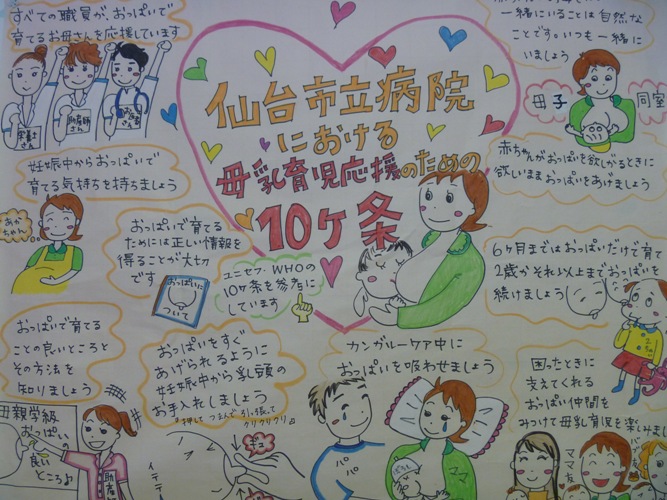 すべての職員が、おっぱいで
育てるお母さんを応援しています
栄養士さん
助産師さん
医師さん
仙台市立病院
における
母乳育児応援のための
10ケ条
ユニセフ・WHOの
10ヶ条を参考に
しています
一緒にいることは自然な
ことです。いつも一緒に
いましょう
母子
同室
妊娠中からおっぱいで
育てる気持ちを持ちましょう
あか
ちゃん
おっぱいで育てる
ためには正しい情報を
得ることが大切
です
おっぱいに
ついて
赤ちゃんがおっぱいを欲しがるときに
欲しいままおっぱいをあげましょう
6ヶ月まではおっぱいだけで育て
2歳かそれ以上までおっぱいを
続けましょう
おっぱいで育てる
ことの良いところと
その方法を
知りましょう
母親学級
おっぱい
良い
ところ
おっぱいをすぐ
あげられるように
妊娠中から乳頭の
お手入れしましょう
押して つまんで 引っ張って
クリクリクリ
キュ
イテテ
カンガルーケア中に
おっぱいを吸わせましょう
パパ
ママ
困ったときに
支えてくれる
おっぱい仲間を
みつけて母乳育児を楽
ママ友